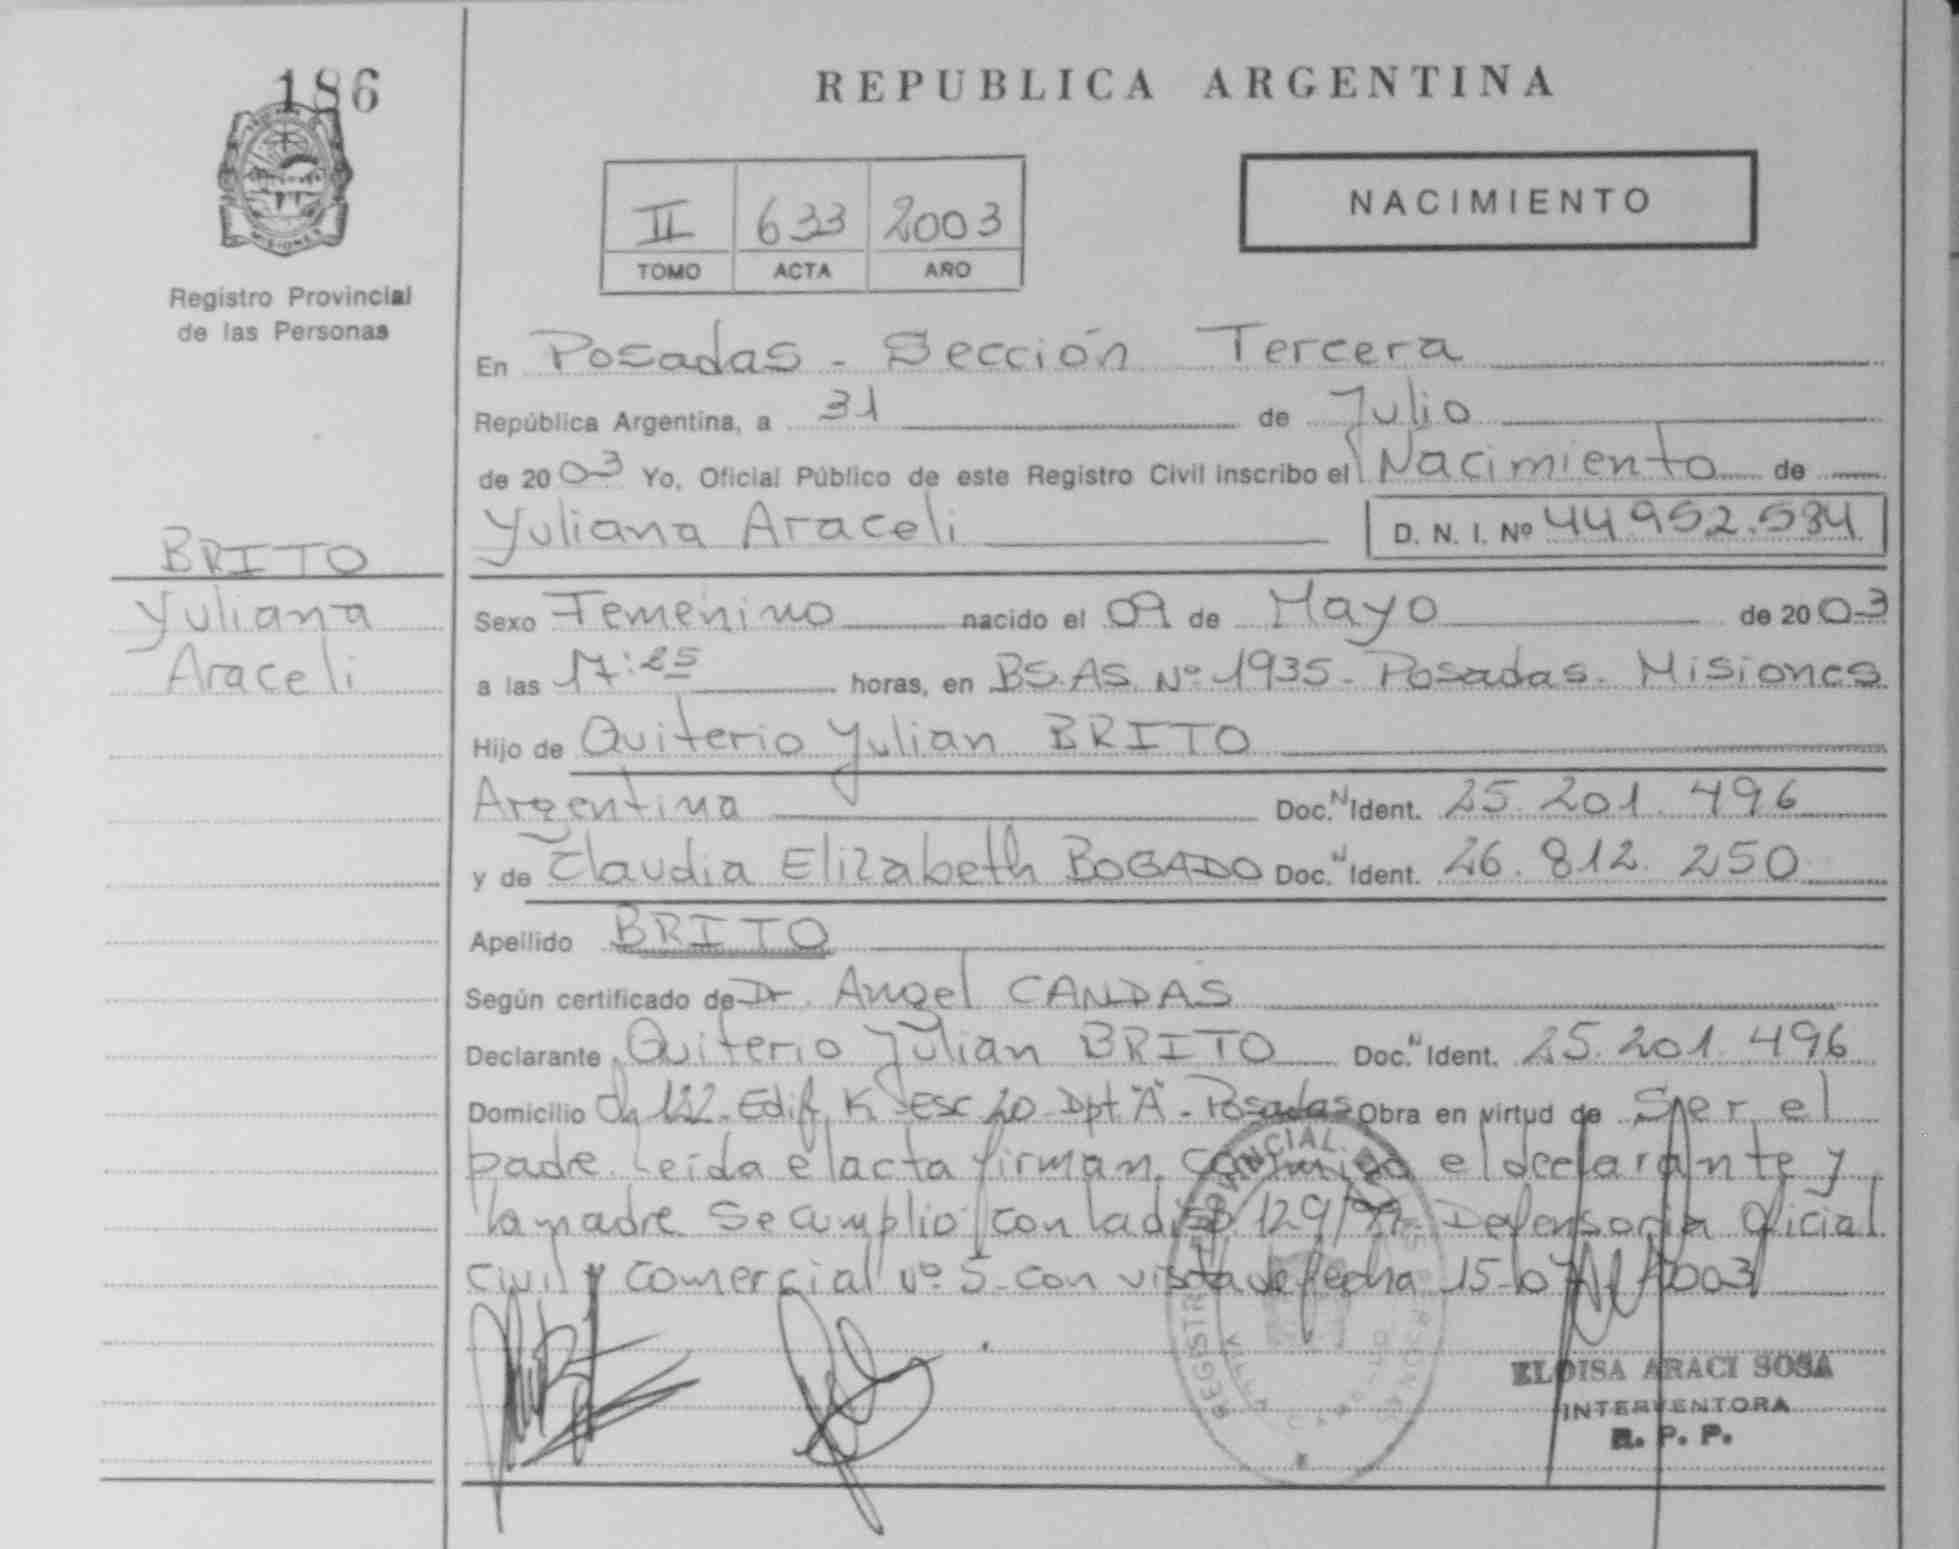 186
MISIONES
Registro Provincial
de las Personas
BRITO
Yuliana
Araceli
REPUBLICA ARGENTINA
II 633 2003
TOMO ACTA AÑO
NACIMIENTO
En Posadas - Sección Tercera
República Argentina, a 31 de Julio
de 2003 Yo, Oficial Público de este Registro Civil inscribo el Nacimiento de
Yuliana Araceli D. N. I. Nº 44.952.584
Sexo Femenino nacido el 09 de Mayo de 2003
a las 17:25 horas, en BS.AS. Nº 1935 - Posadas - Misiones
Hijo de Quiterio Yulian BRITO
Argentina Doc. N Ident. 25.201.496
y de Claudia Elizabeth BOGADO Doc. N Ident. 26.812.250
Apellido BRITO
Según certificado de Dr. Angel CANDAS
Declarante Quiterio Julian BRITO Doc. N Ident. 25.201.496
Domicilio Ch 122 - Edif. K - Esc 20 - Dpt "A" - Posadas Obra en virtud de Ser el
padre. Leída el acta firman conmigo el declarante y
la madre Se cumplió con la disp. 129/ Defensoría Oficial
Civil y Comercial nº 5 - con vista de fecha 15-07-2003
ELOISA ARACI SOSA
INTERVENTORA
R. P. P.